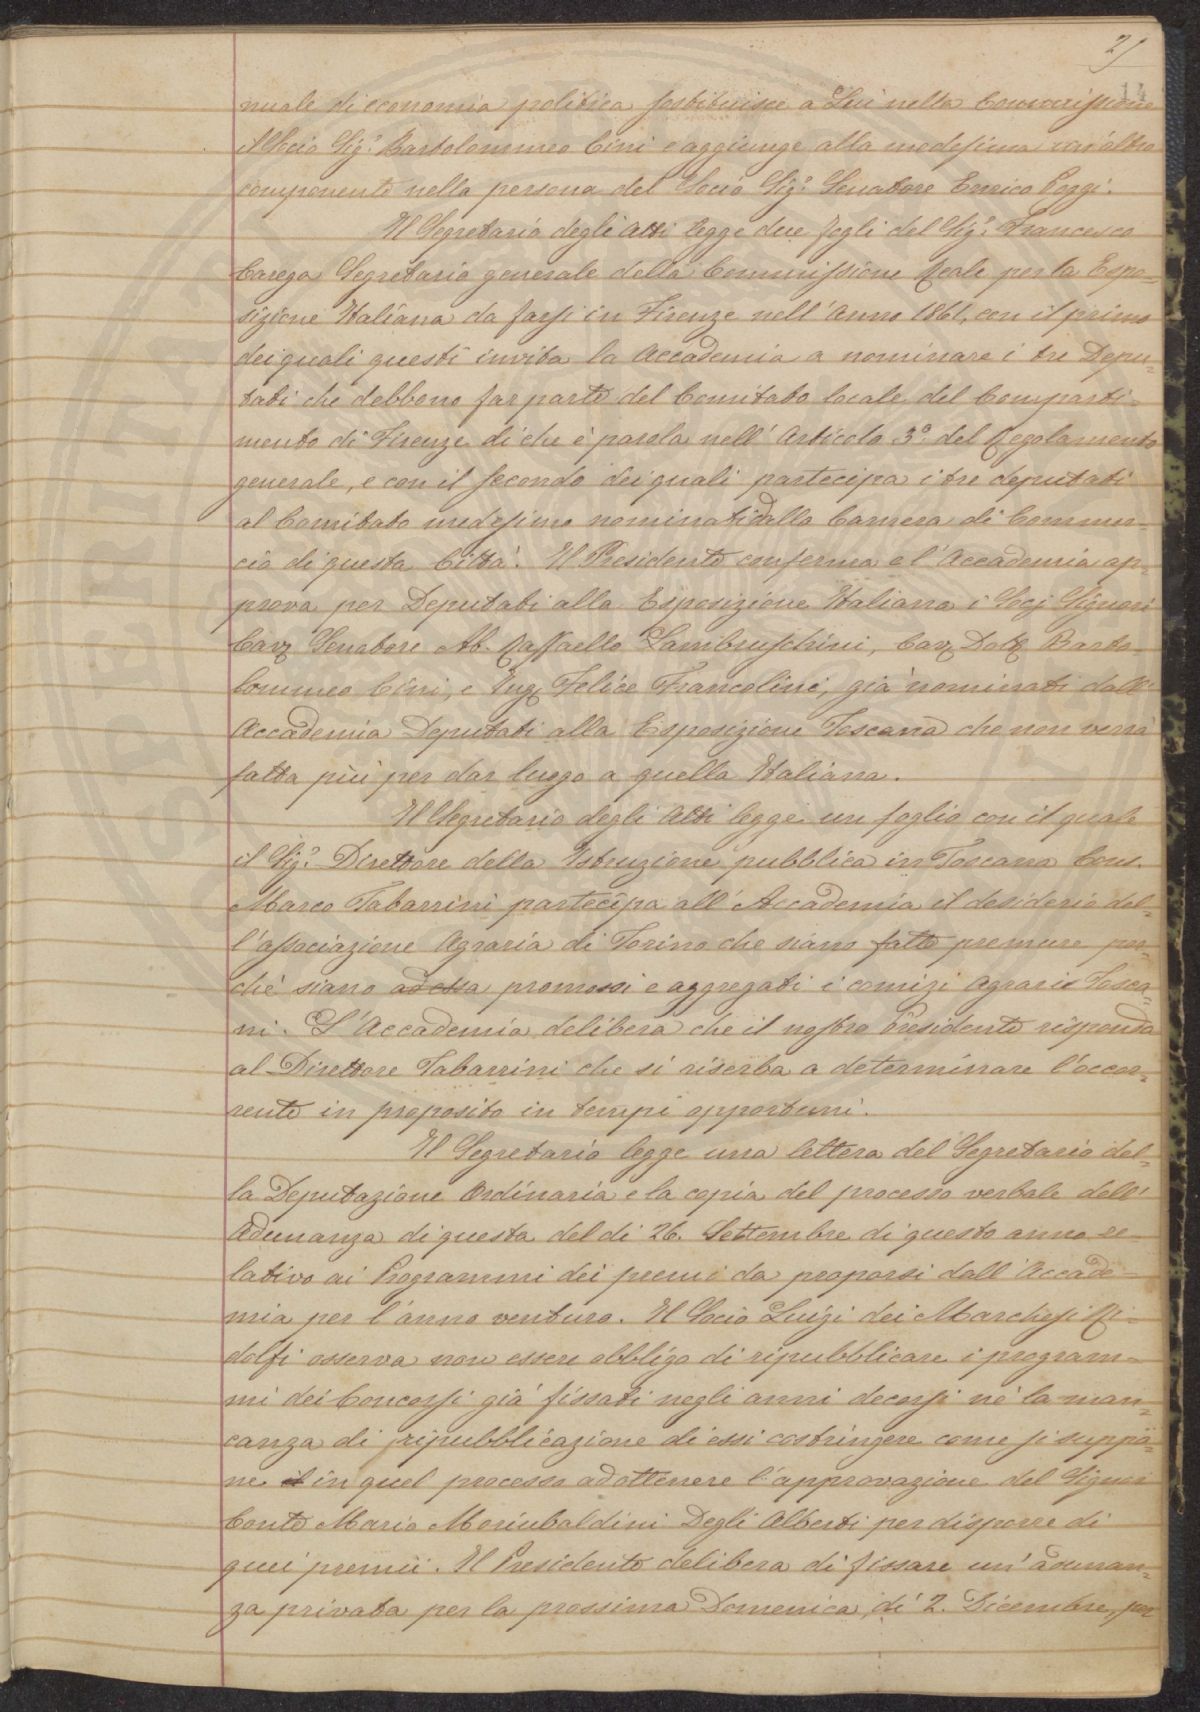 21
14
nuale di economia politica sostituisce a Lui nella Commissione
il Socio Sig.r Bartolommeo Cini e aggiunge alla medesima un'altro
componente nella persona del Socio Sig.r Senatore Enrico Poggi.
Il Segretario degli Atti legge due fogli del Sig.r Francesco
Carega Segretario generale della Commissione Reale per la Espo=
sizione Italiana da farsi in Firenze nell'Anno 1861, con il primo
dei quali questi invita la Accademia a nominare i tre Depu=
tati che debbono far parte del Comitato locale del Comparti=
mento di Firenze di che è parola nell'Articolo 3.o del Regolamento
generale, e con il secondo dei quali partecipa i tre deputati
al Comitato medesimo nominati dalla Camera di Commer=
cio di questa Città. Il Presidente conferma e l'Accademia ap=
prova per Deputati alla Esposizione Italiana i Socj Signori
Cav. Senatore Ab. Raffaello Lambruschini, Cav. Dott. Barto=
lommeo Cini, e Ing. Felice Francolini, già nominati dall'
Accademia Deputati alla Esposizione Toscana che non verrà
fatta più per dar luogo a quella Italiana.
Il Segretario degli Atti legge un foglio con il quale
il Sig.r Direttore della Istruzione pubblica in Toscana Cons.
Marco Tabarrini partecipa all'Accademia il desiderio del=
l'associazione Agraria di Torino che siano fatte premure per=
chè siano adessa promossi e aggregati i comizi agrari Tosca=
ni. L'Accademia delibera che il nostro Presidente risponda
al Direttore Tabarrini che si riserba a determinare l'occor=
rente in proposito in tempi opportuni.
Il Segretario legge una lettera del Segretario del=
la Deputazione Ordinaria e la copia del processo verbale dell'
Adunanza di questa del dì 26. Settembre di questo anno re=
lativo ai Programmi dei premi da proporsi dall'Accade=
mia per l'anno venturo. Il Socio Luigi dei Marchesi Ri=
dolfi osserva non essere obbligo di ripubblicare i program=
mi dei Concorsi già fissati negli anni decorsi nè la man=
canza di ripubblicazione di essi costringere come si suppo=
ne il in quel processo ad ottenere l'approvazione del Signor
Conte Mario Moriubaldini Degli Alberti per disporre di
quei premii. Il Presidente delibera di fissare un'adunan=
za privata per la prossima Domenica, dì 2. Dicembre, per